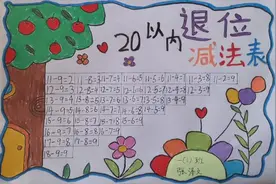 20以内退位减法表
11-9=2 11-8=3 11-7=4 11-6=5 11-5=6 11-4=7 11-3=8 11-2=9
12-9=3 12-8=4 12-7=5 12-6=6 12-5=7 12-4=8 12-3=9
13-9=4 13-8=5 13-7=6 13-6=7 13-5=8 13-4=9
14-9=5 14-8=6 14-7=7 14-6=8 14-5=9
15-9=6 15-8=7 15-7=8 15-6=9
16-9=7 16-8=8 16-7=9
17-9=8 17-8=9
18-9=9
一(1)班